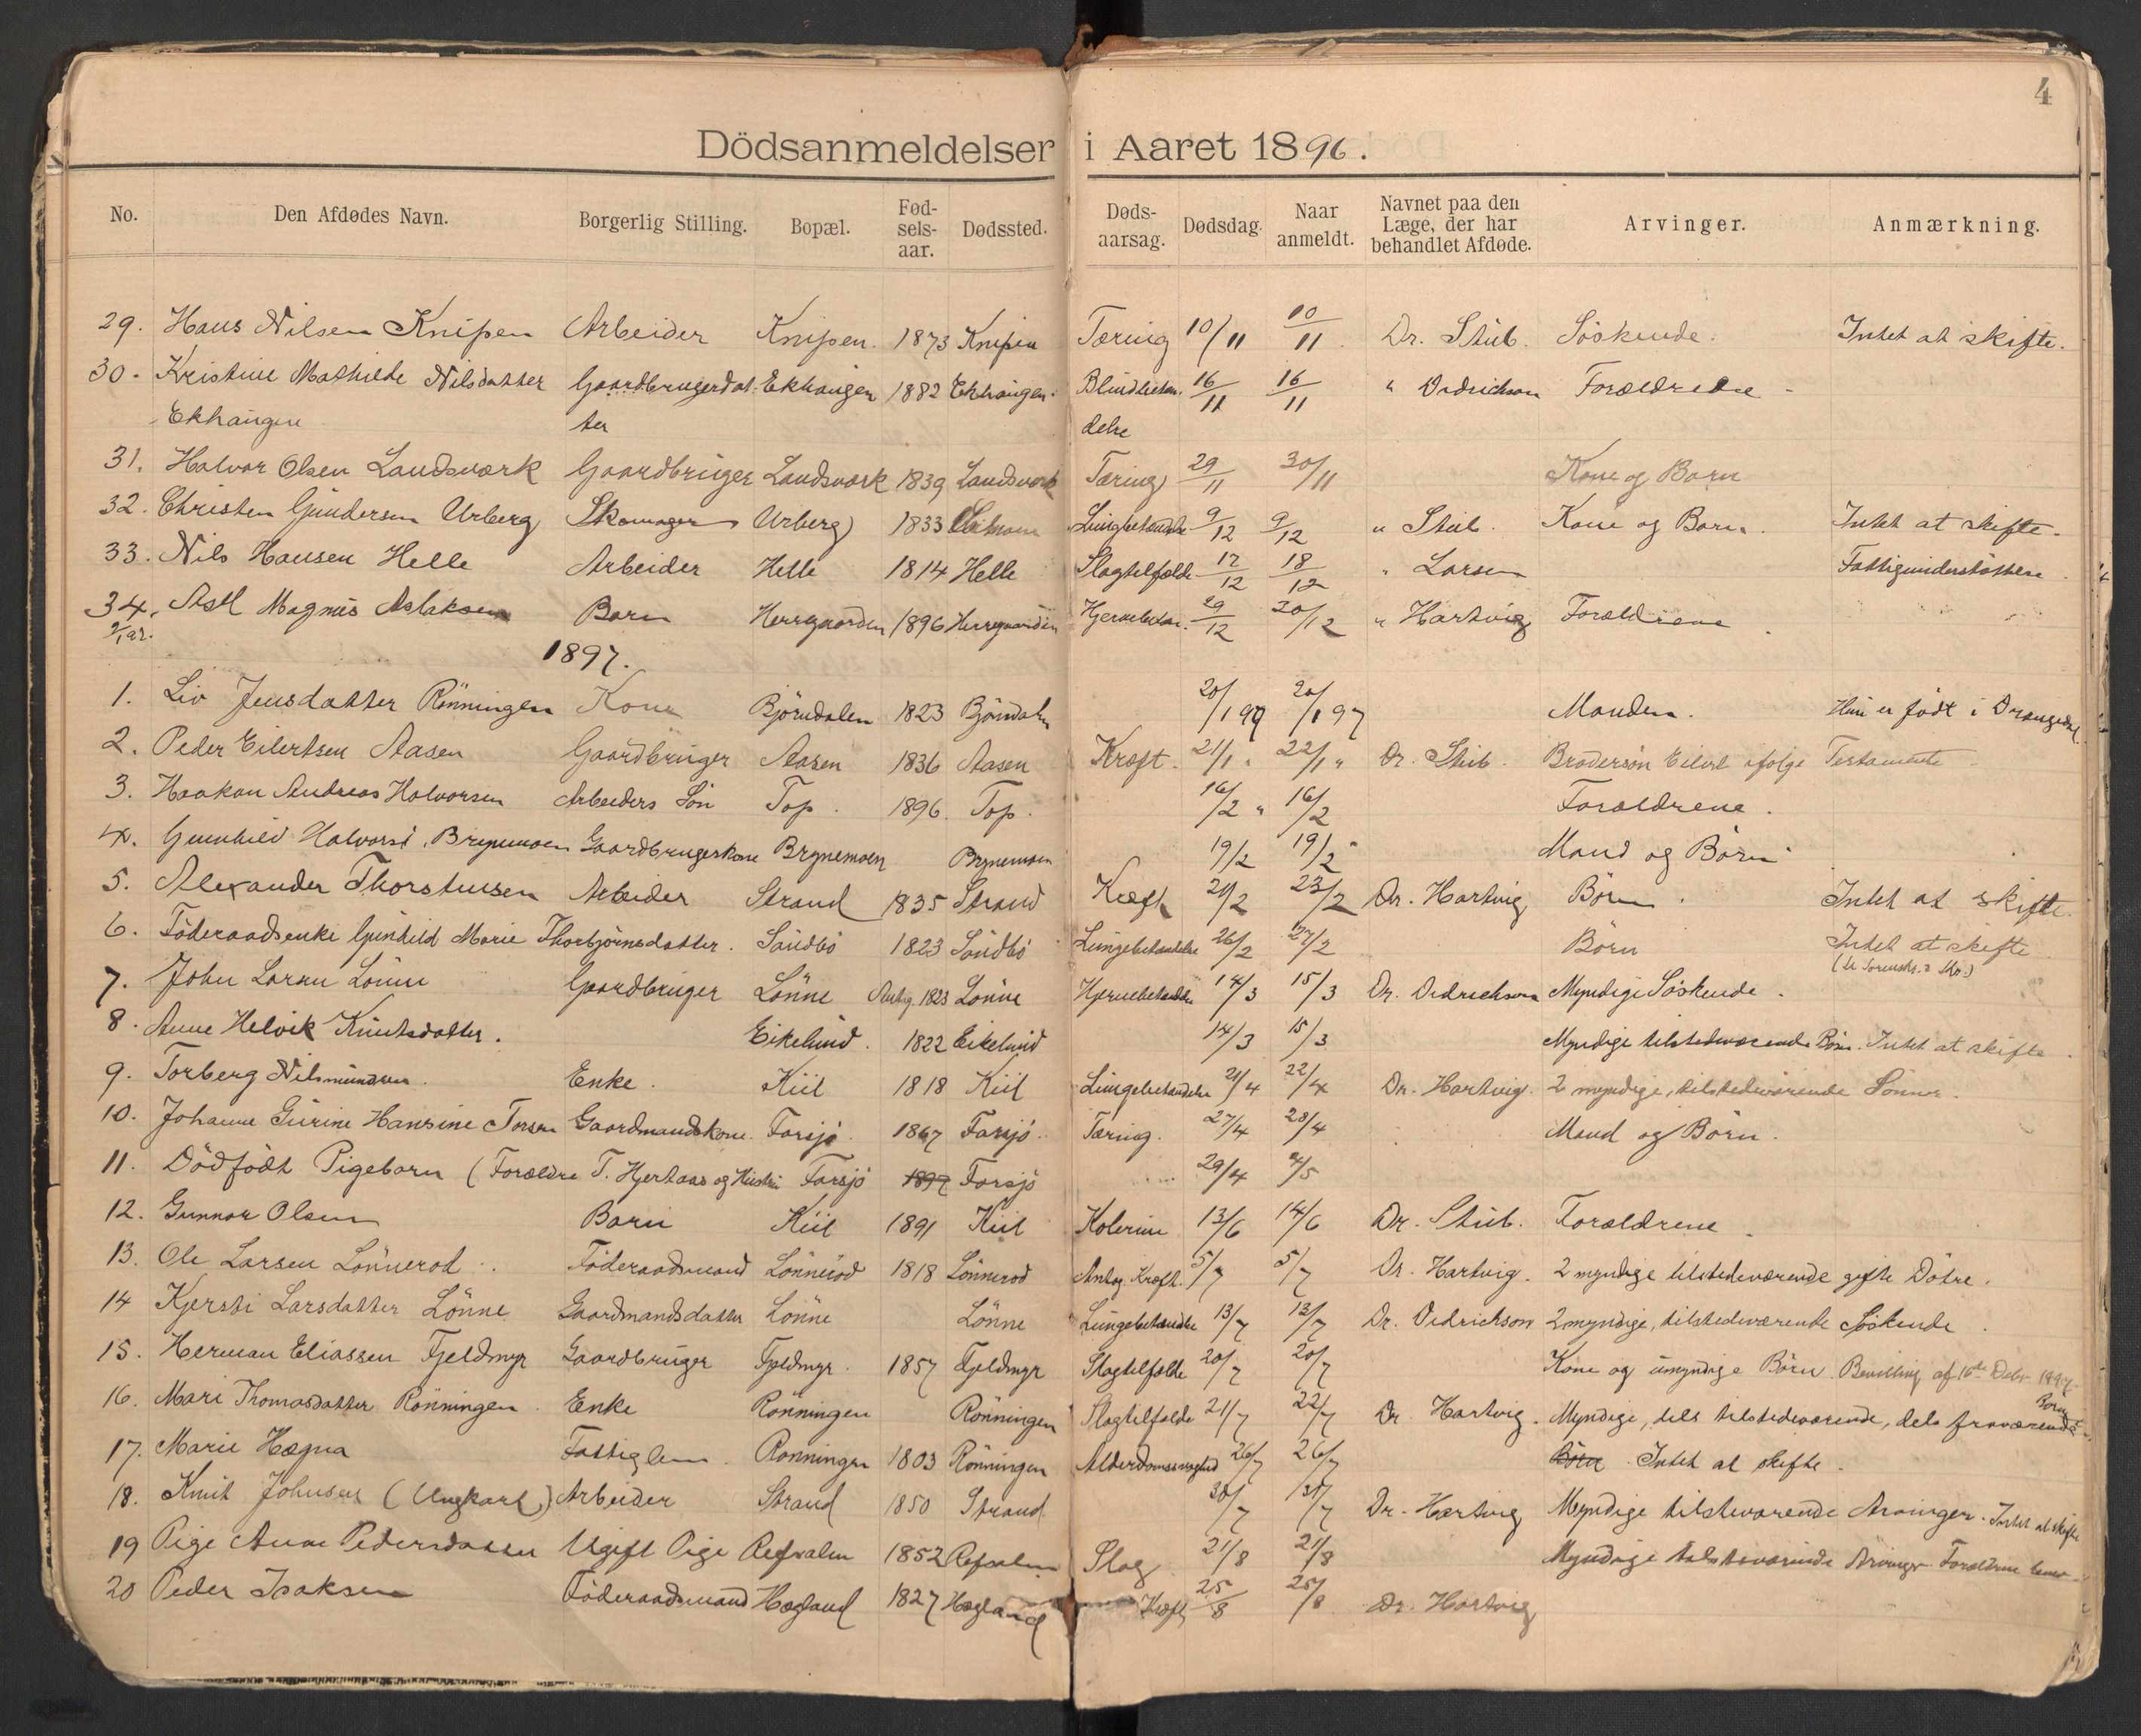 4
Dödsanmeldelser i Aaret 1896.
No. Den Afdødes Navn. Borgerlig Stilling. Bopæl. Fød-sels-aar. Dødssted. Døds-aarsag. Dødsdag. Naar anmeldt. Navnet paa den Læge, der har behandlet Afdøde. Arvinger. Anmærkning.
29. Hans Nilsen Knipen Arbeider Knipen. 1873 Knipen Tæring 10/11 10/11. Dr. Stub. Söskende. Intet at skifte.
30. Kristine Mathilde Nilsdatter Gaardbrugerdat- Ekhaugen 1882 Ekhaugen. 16/11 16/11 " Vedrichson Forældrene
Ekhaugen ter delse
31. Halvor Olsen Landsværk Gaardbruger Landsværk 1839 Landsværk Tæring 29/11 30/11 Kone og Børn
32. Christen Gundersen Urberg Skomager Urberg 1833 Lungebetændelse 9/12 9/12 " Stub. Kone og Børn. Intet at skifte.
33. Nils Hansen Helle Arbeider Helle 1814 Helle Slagtilfælde 17/12 18/12 " Larsen Fattigunderstöttelse.
34. Axel Magnus Aslaksen Barn Herregaarden 1896 Herregaarden Hjernebetæn. 29/12 30/12 " Hartvig Forældrene
1897.
1. Liv Jensdatter Rönningen Kone Björndalen 1823 Björndalen 20/1 97 20/1 97 Manden. Hun er födt i Drangedal.
2. Peder Eilertsen Aasen Gaardbruger Aasen 1836 Aasen Kræft. 21/1 " 22/1 " Dr. Stub. Brodersön Eilert ifölge Testamente
3. Haakon Andreas Halvorsen Arbeiders Sön Top. 1896. Top. 16/2 " 16/2 Forældrene.
4. Gunhild Halvorsd. Brynemoen Gaardbrugerkone Brynemoen Brynemoen 19/2 19/2 " Mand og Börn
5. Alexander Thorstensen Arbeider Strand 1835 Strand Kræft 21/2 23/2 Dr. Hartvig Börn. Intet at skifte.
6. Föderaadsenke Gunhild Marie Thorbjörnsdatter. Sandbö 1823 Sandbö Lungebetændelse 26/2 27/2 Börn Intet at skifte
7. John Larsen Lönne Gaardbruger Lönne Antag. 1823 Lönne Hjernebetændelse 14/3 15/3 Dr. Vedrichson Myndige Söskende.
8. Anne Helvik Knutsdatter. Eikelund. 1822 Eikelund 14/3 15/3 Myndige tilstedeværende Börn. Intet at skifte.
9. Torberg Nilsmundsen. Enke. Kiil 1818 Kiil Lungebetændelse 21/4 22/4 Dr. Hartvig. 2 myndige, tilstedeværende Sönner.
10. Johanne Gurine Hansine Torsen Gaardmandskone. Farsjö. 1867 Farsjö. Tæring. 27/4 28/4 Mand og Börn.
11. Dödfödt Pigebarn (Forældre T. Hjertaas og Hustru Farsjö 1897 Farsjö 29/4 4/5
12. Gunnar Olsen Barn Kiil 1891 Kiil Kolerine 13/6 14/6 Dr. Stub. Forældrene.
13. Ole Larsen Lönneröd. Föderaadsmand Lönneröd 1818 Lönneröd Antag. Kræft. 5/7 5/7 Dr. Hartvig. 2 myndige tilstedeværende gifte Dötre.
14 Kjersti Larsdatter Lönne Gaardmandsdatter Lönne Lönne Lungebetændelse 13/7 13/7 Dr. Vedrichson 2 myndige, tilstedeværende Söskende.
15. Herman Eliassen Fjeldmyr Gaardbruger Fjeldmyr. 1857 Fjeldmyr Slagtilfælde 20/7 20/7 Kone og umyndige Börn. Bevilling af 16de Debr. 1897.
16. Mari Thomasdatter Rönningen. Enke Rönningen Rönningen Slagtilfælde 21/7 22/7 Dr. Hartvig. Myndige, dels tilstedeværende, dels fraværende Börn.
17. Marie Hægna Fattiglem. Rönningen 1803 Rönningen Alderdomssvaghed 26/7 26/7 Börn. Intet at skifte.
18. Knut Johnsen (Ungkarl) Arbeider Strand 1850 Strand 30/7 31/7 Dr. Hartvig Myndige tilsteværende Arvinger. Intet at skifte
19 Pige Anne Pedersdatter Ugift Pige Refsalen 1852 Refsalen Slag 21/8 21/8 Myndige tilsteværende Arvinger. Forældrene lever.
20 Peder Isaksen Föderaadsmand Hægland 1827 Hægland Kræft 25/8 25/8 Dr. Hartvig